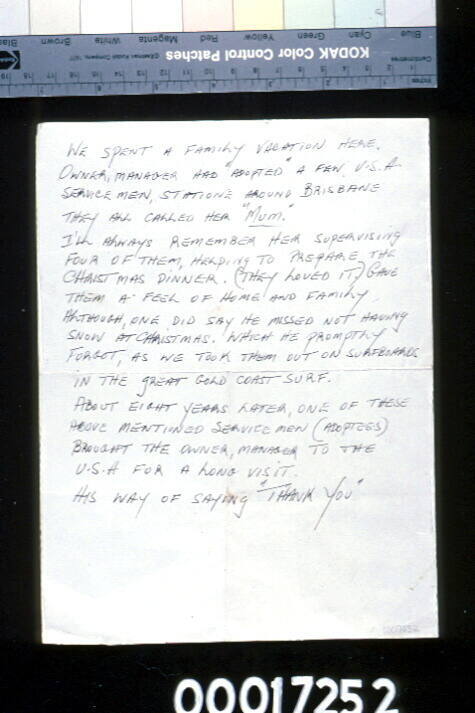 Blue Cyan Green Yellow Red Magenta White Brown Black
KODAK Color Control Patches
Centimetres
Inches
WE SPENT A FAMILY VACATION HERE.
OWNER, MANAGER HAD ADOPTED" A FEW U.S.A
SERVICE MEN, STATIONE AROUND BRISBANE
THEY ALL CALLED HER "MUM."
I'LL ALWAYS REMEMBER HER SUPERVISING
FOUR OF THEM, HELPING TO PREPARE THE
CHRISTMAS DINNER. (THEY LOVED IT,) GAVE
THEM A FEEL OF HOME AND FAMILY,
ALTHOUGH, ONE DID SAY HE MISSED NOT HAVING
SNOW AT CHRISTMAS. WHICH HE PROMPTLY
FORGOT, AS WE TOOK THEM OUT ON SURFBOARDS
IN THE GREAT GOLD COAST SURF.
ABOUT EIGHT YEARS LATER, ONE OF THESE
ABOVE MENTIONED SERVICE MEN (ADOPTEES)
BROUGHT THE OWNER, MANAGER TO THE
U.S.A FOR A LONG VISIT.
HIS WAY OF SAYING "THANK YOU"
00017252